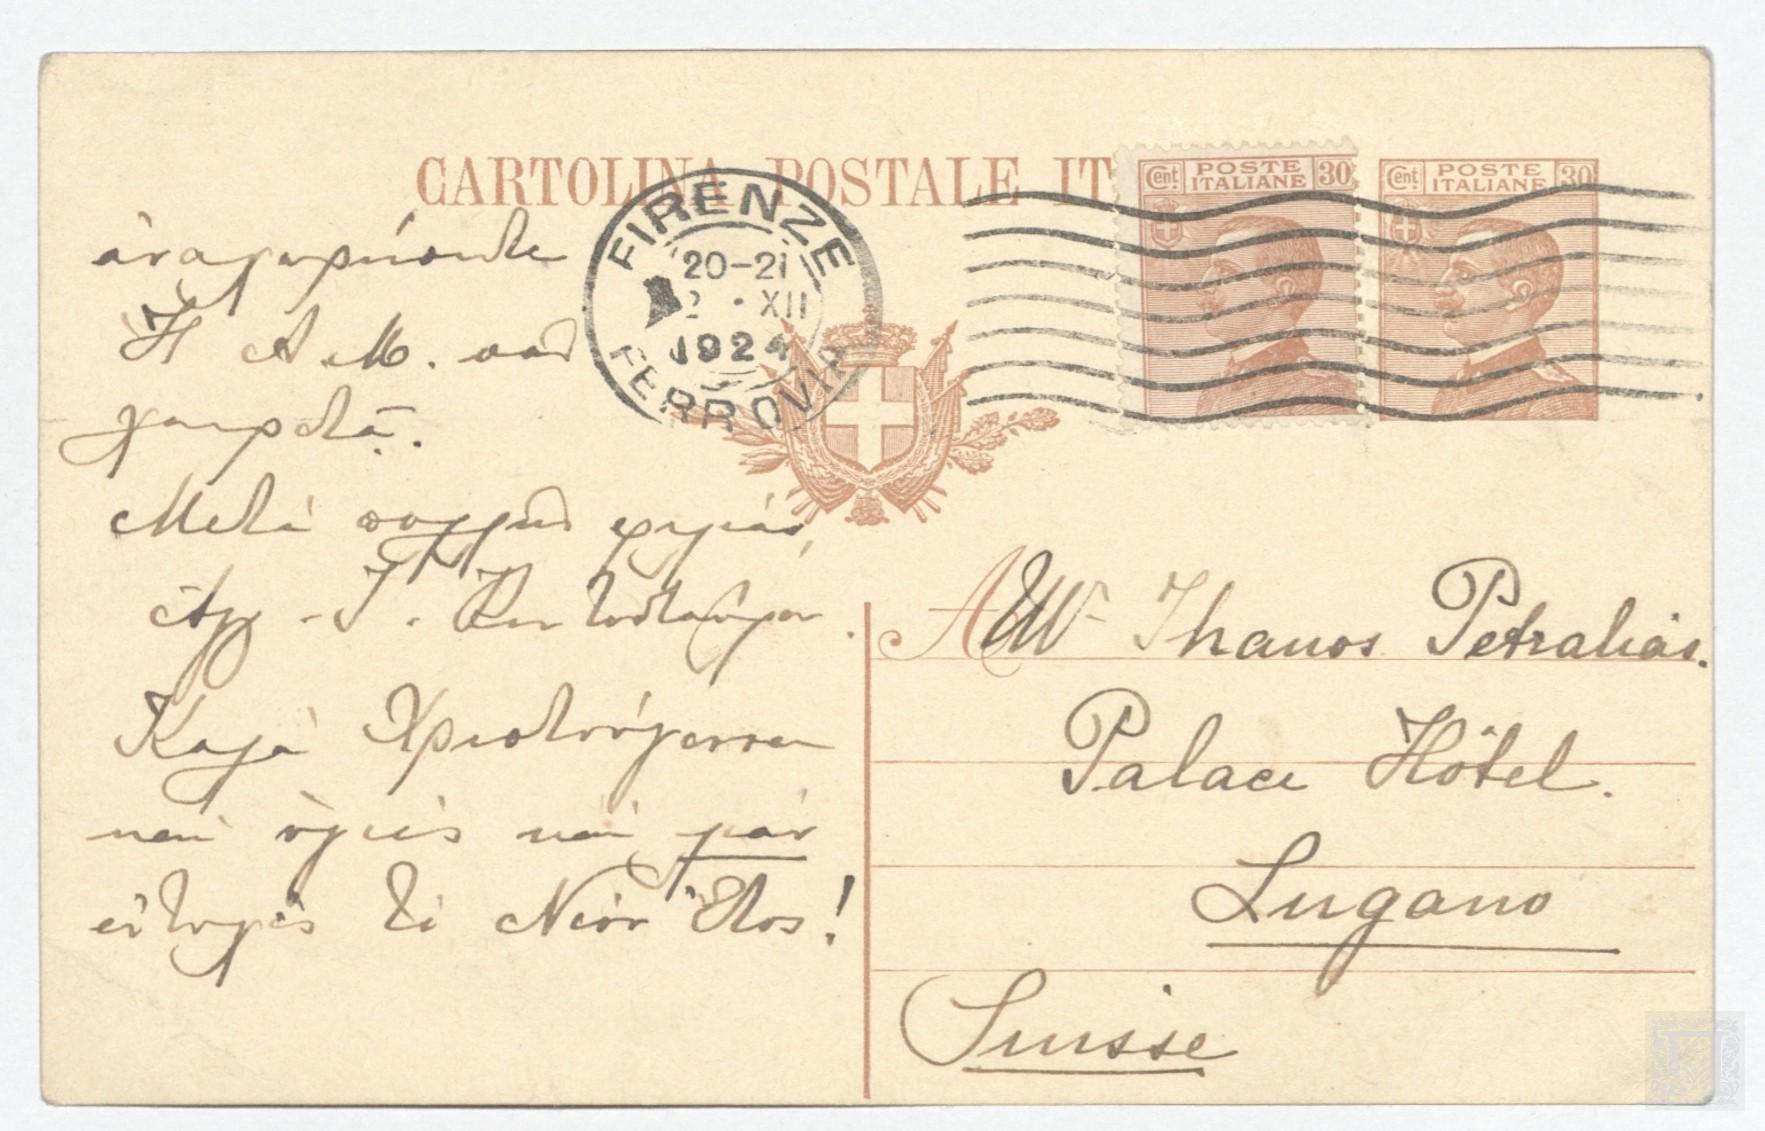 CARTOLINA POSTALE IT
Cent. POSTE ITALIANE 30
Cent. POSTE ITALIANE 30
FIRENZE
20-21
2 · XII
1924
FERROVIA
ἀναχωρήσετε
Ἡ Α. Μ. σᾶς
χαιρετᾷ.
Μετὰ πολλῆς φιλίας
Ἀγγ. Γ.
Καλὰ Χριστούγεννα
καὶ ὑγιὲς καὶ πᾶν
εὐτυχὲς τὸ Νέον Ἔτος!
A Mr Thanos Petraliàs.
Palace Hôtel.
Lugano
Suisse